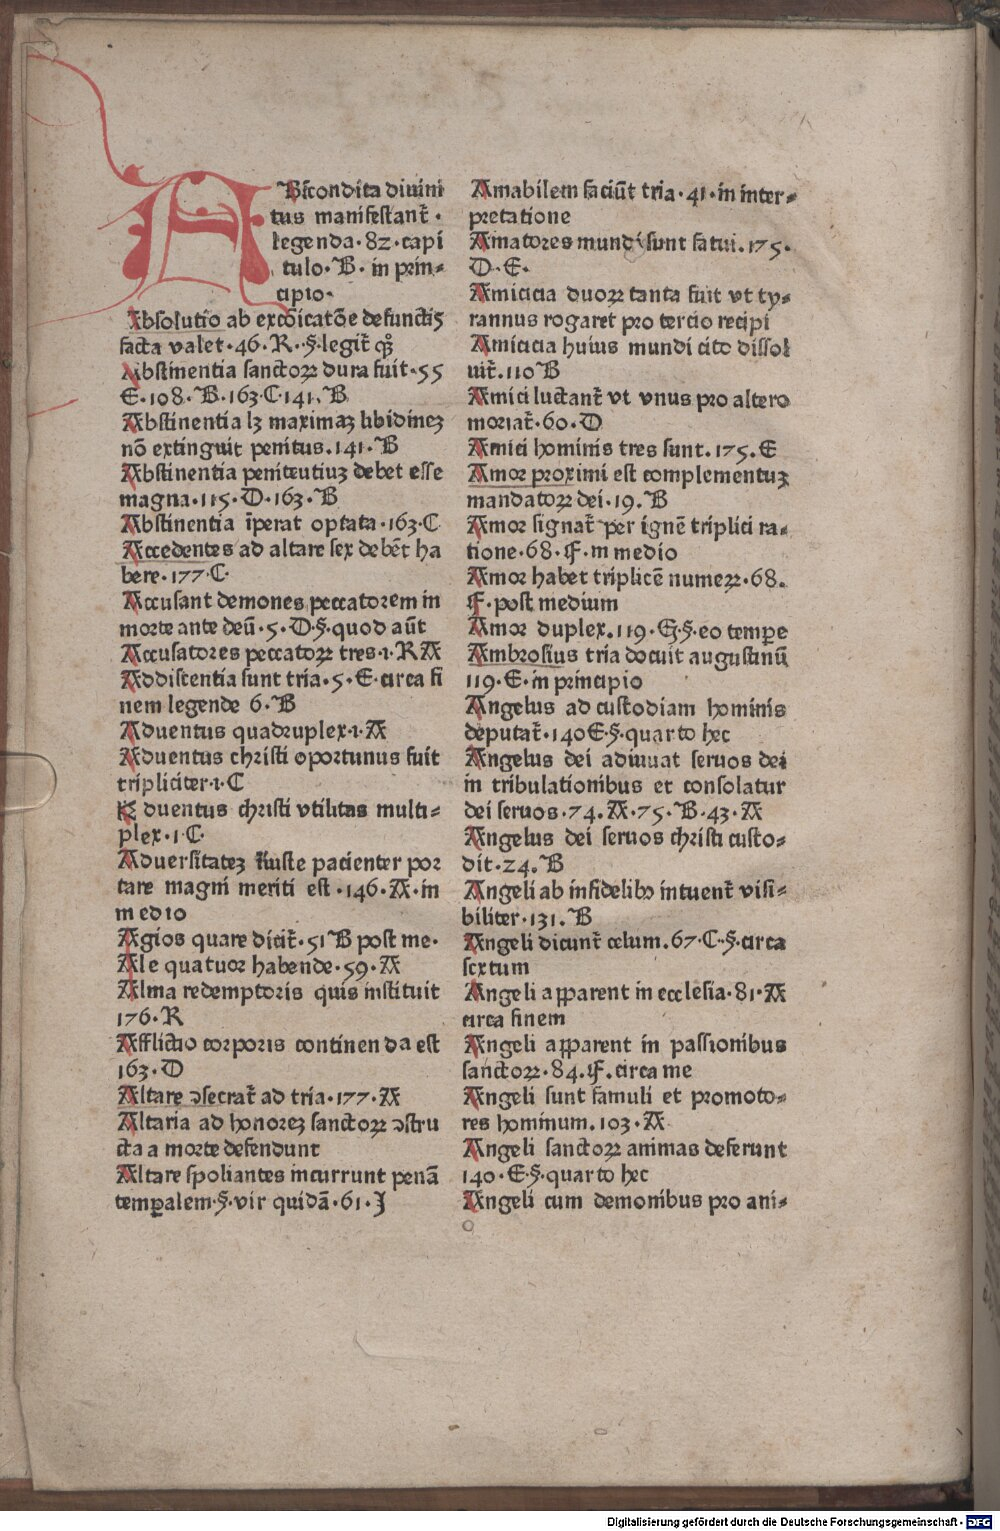 ABscondita diuini
tus manifestant̄ ·
legenda · 82 · capi
tulo · B · in prin⸗
cipio ·
Absolutio ab excōicatōe defunctis
facta valet · 46 · R · § · legit̄ qꝫ
Abstinentia sanctoꝝ dura fuit · 55
E · 108 · B · 163 · C · 141 · B
Abstinentia lꝫ maximaꝫ libidineꝫ
nō extinguit penitus . 141 · B
Abstinentia peniteutiuꝫ debet esse
magna · 115 · D · 163 · B
Abstinentia īperat optata · 163 · C
Accedentes ad altare sex debēt ha
bere · 177 · C ·
Accusant demones peccatorem in
morte ante deū · 5 · D · § · quod aūt
Accusatores peccatoꝝ tres · 1 · R A
Addiscentia sunt tria · 5 · E · circa fi
nem legende 6 · B
Aduentus quadruplex · 1 · A
Aduentus christi oportunus fuit
tripliciter · 1 · C
Aduentus christi vtilitas multi⸗
plex · 1 · C ·
Aduersitateꝫ iiuste pacienter por
tare magni meriti est · 146 · A · in
medio
Agios quare dicit̄ · 51 B post me ·
Ale quatuor habende · 59 · A
Alma redemptoris quis instituit
176 · R
Afflictio corporis continenda est
163 · D
Altare ↄsecrat̄ ad tria · 177 · A
Altaria ad honoreꝫ sanctoꝝ ↄstru
cta a morte defendunt
Altare spoliantes incurrunt penā
temꝑalem · § · vir quidā · 61 · J
Amabilem faciūt tria · 41 · in inter⸗
pretatione
Amatores mundi sunt fatui . 175 ·
D · E ·
Amicicia duoꝝ tanta fuit vt ty⸗
rannus rogaret pro tercio recipi
Amicicia huius mundi cito dissol
uit̄ . 110 B
Amici luctant̄ vt vnus pro altero
moriat̄ · 60 · D
Amici hominis tres sunt . 175 · E
Amor proximi est complementuꝫ
mandatoꝝ dei · 19 · B
Amor signat̄ per ignē triplici ra⸗
tione · 68 · F · in medio
Amor habet triplicē numeꝝ · 68 .
F · post medium
Amor duplex . 119 · G · § · eo temꝑe
Ambrosius tria docuit augustinū
119 · E · in principio
Angelus ad custodiam hominis
deputat̄ · 140 E · § · quarto hec
Angelus dei adiuuat seruos dei
in tribulationibus et consolatur
dei seruos · 74 . A · 75 · B · 43 · A
Angelus dei seruos christi custo⸗
dit · 24 . B
Angeli ab infidelibꝫ intuent̄ visi⸗
biliter · 131 . B
Angeli dicunt̄ celum . 67 · C · § · circa
sextum
Angeli apparent in ecclesia · 81 · A
circa finem
Angeli apparent in passionibus
sanctoꝝ · 84 . F . circa me
Angeli sunt famuli et promoto⸗
res hominum . 103 · A
Angeli sanctoꝝ animas deferunt
140 · E · § · quarto hec
Angeli cum demonibus pro ani⸗
Digitalisierung gefördert durch die Deutsche Forschungsgemeinschaft - DFG